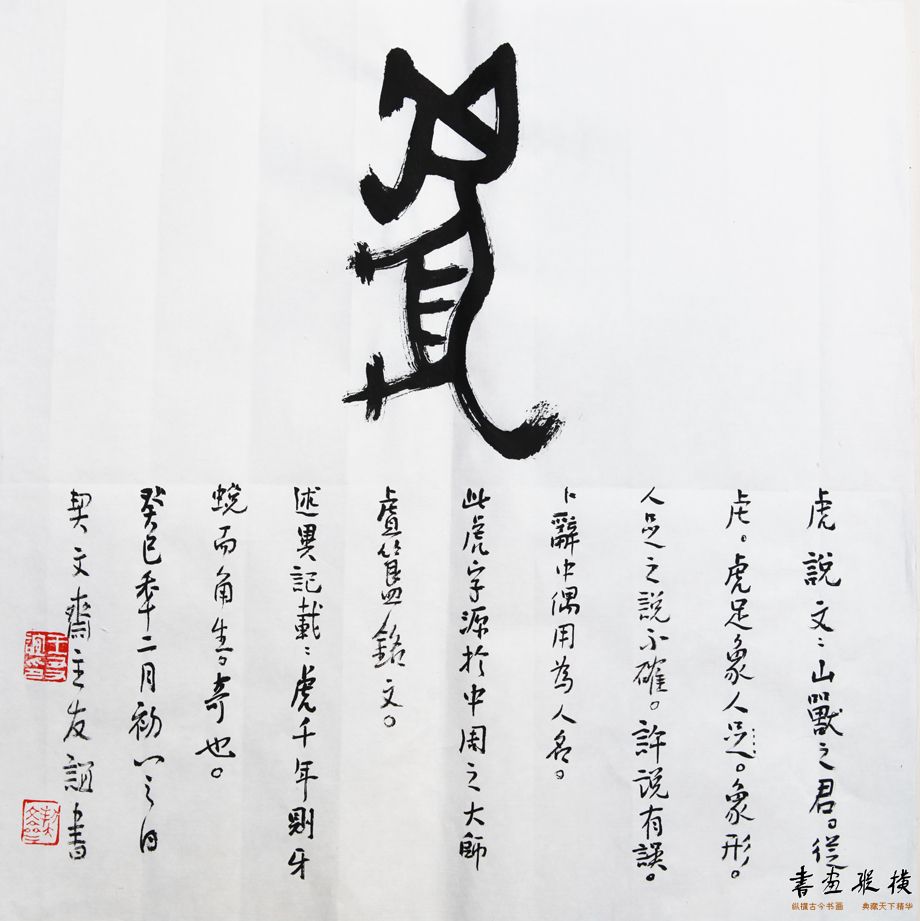 虎
虎說文:山獸之君。從
虍。虎足象人足。象形。
人足之說不確。許說有誤。
卜辭中偶用為人名。
此虎字源於中周之大師
虘簋銘文。
述異記載:虎千年則牙
蛻而角生。奇也。
癸巳年二月初八之日
契文齋主友誼書
書画縱橫
纵横古今书画 典藏天下精华